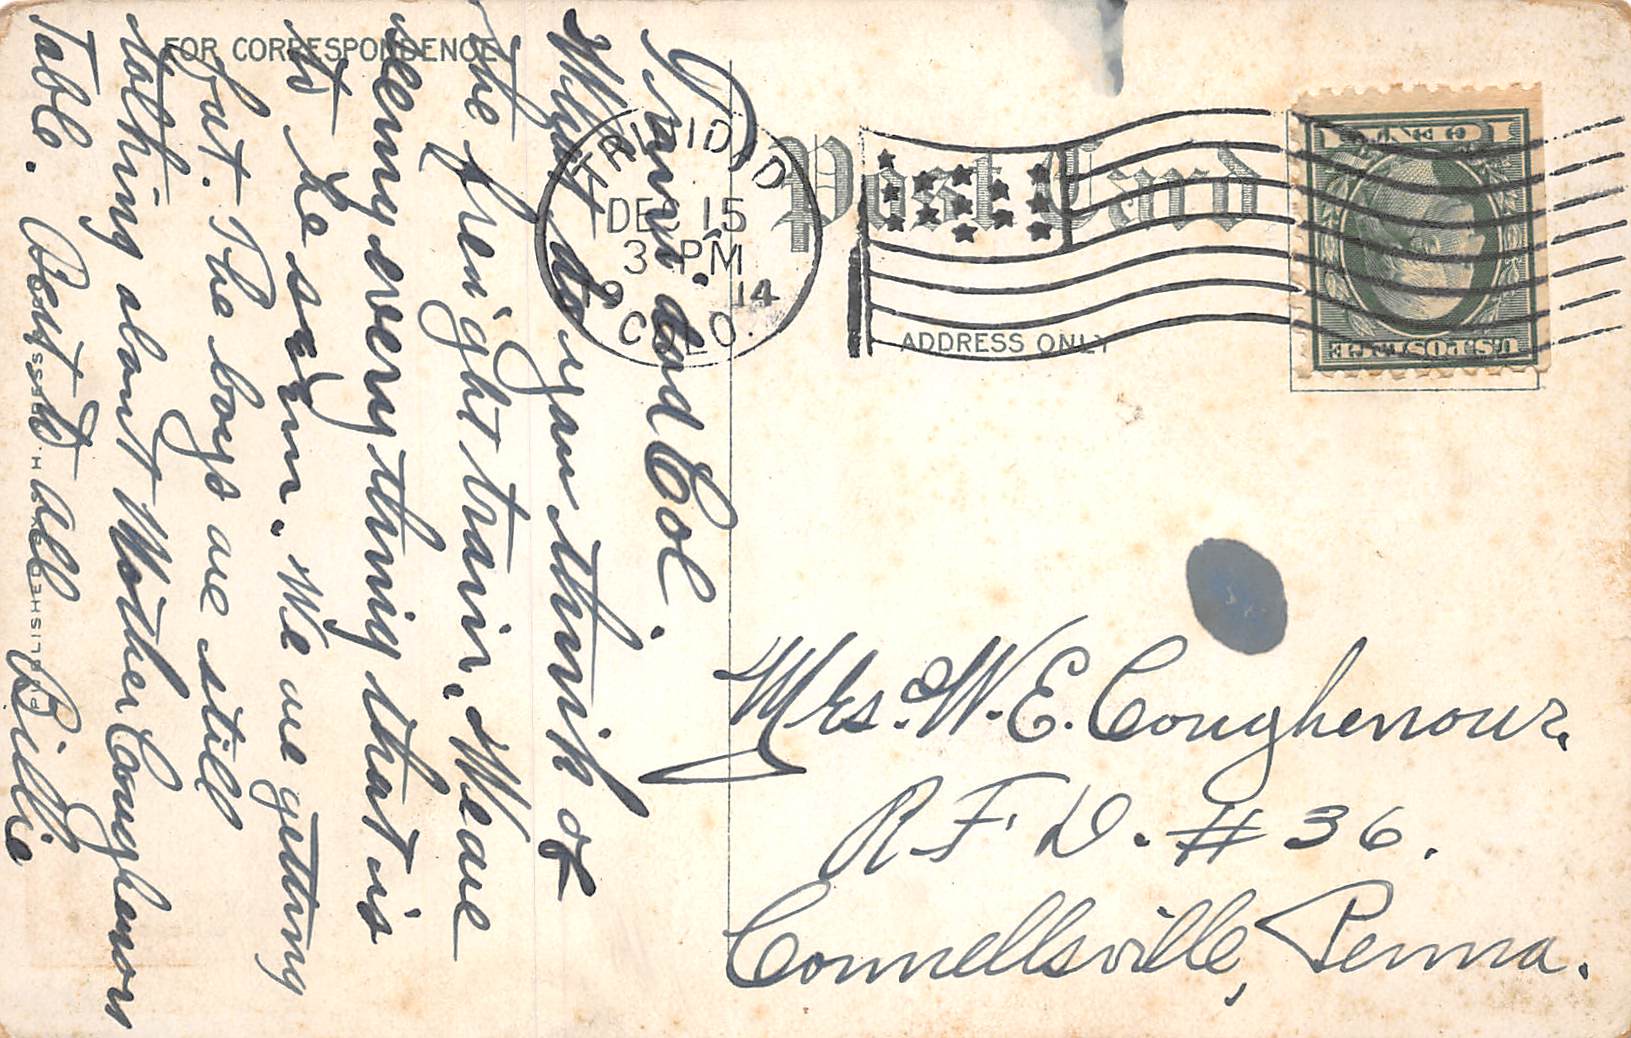 FOR CORRESPONDENCE
Post Card
ADDRESS ONLY
TRINIDAD
DEC 15
3 PM
1914
COLO.
1 CENT 1
U.S. POSTAGE
and Col.
What do you think of
the freight train. We are
seeing everything that is
to be seen. We are getting
fat. The boys are still
talking about Mother Coughenour
Table. Best to all
Billie
Mrs. W. E. Coughenour.
R. F. D. # 36.
Connellsville, Penna.
PUBLISHED